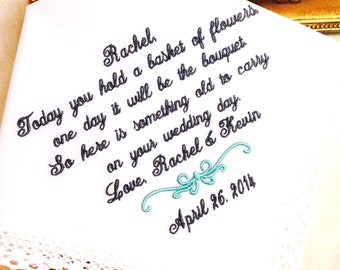 Rachel,
Today you hold a basket of flowers,
one day it will be the bouquet.
So here is something old to carry
on your wedding day.
Love, Rachel & Kevin
April 26, 2014